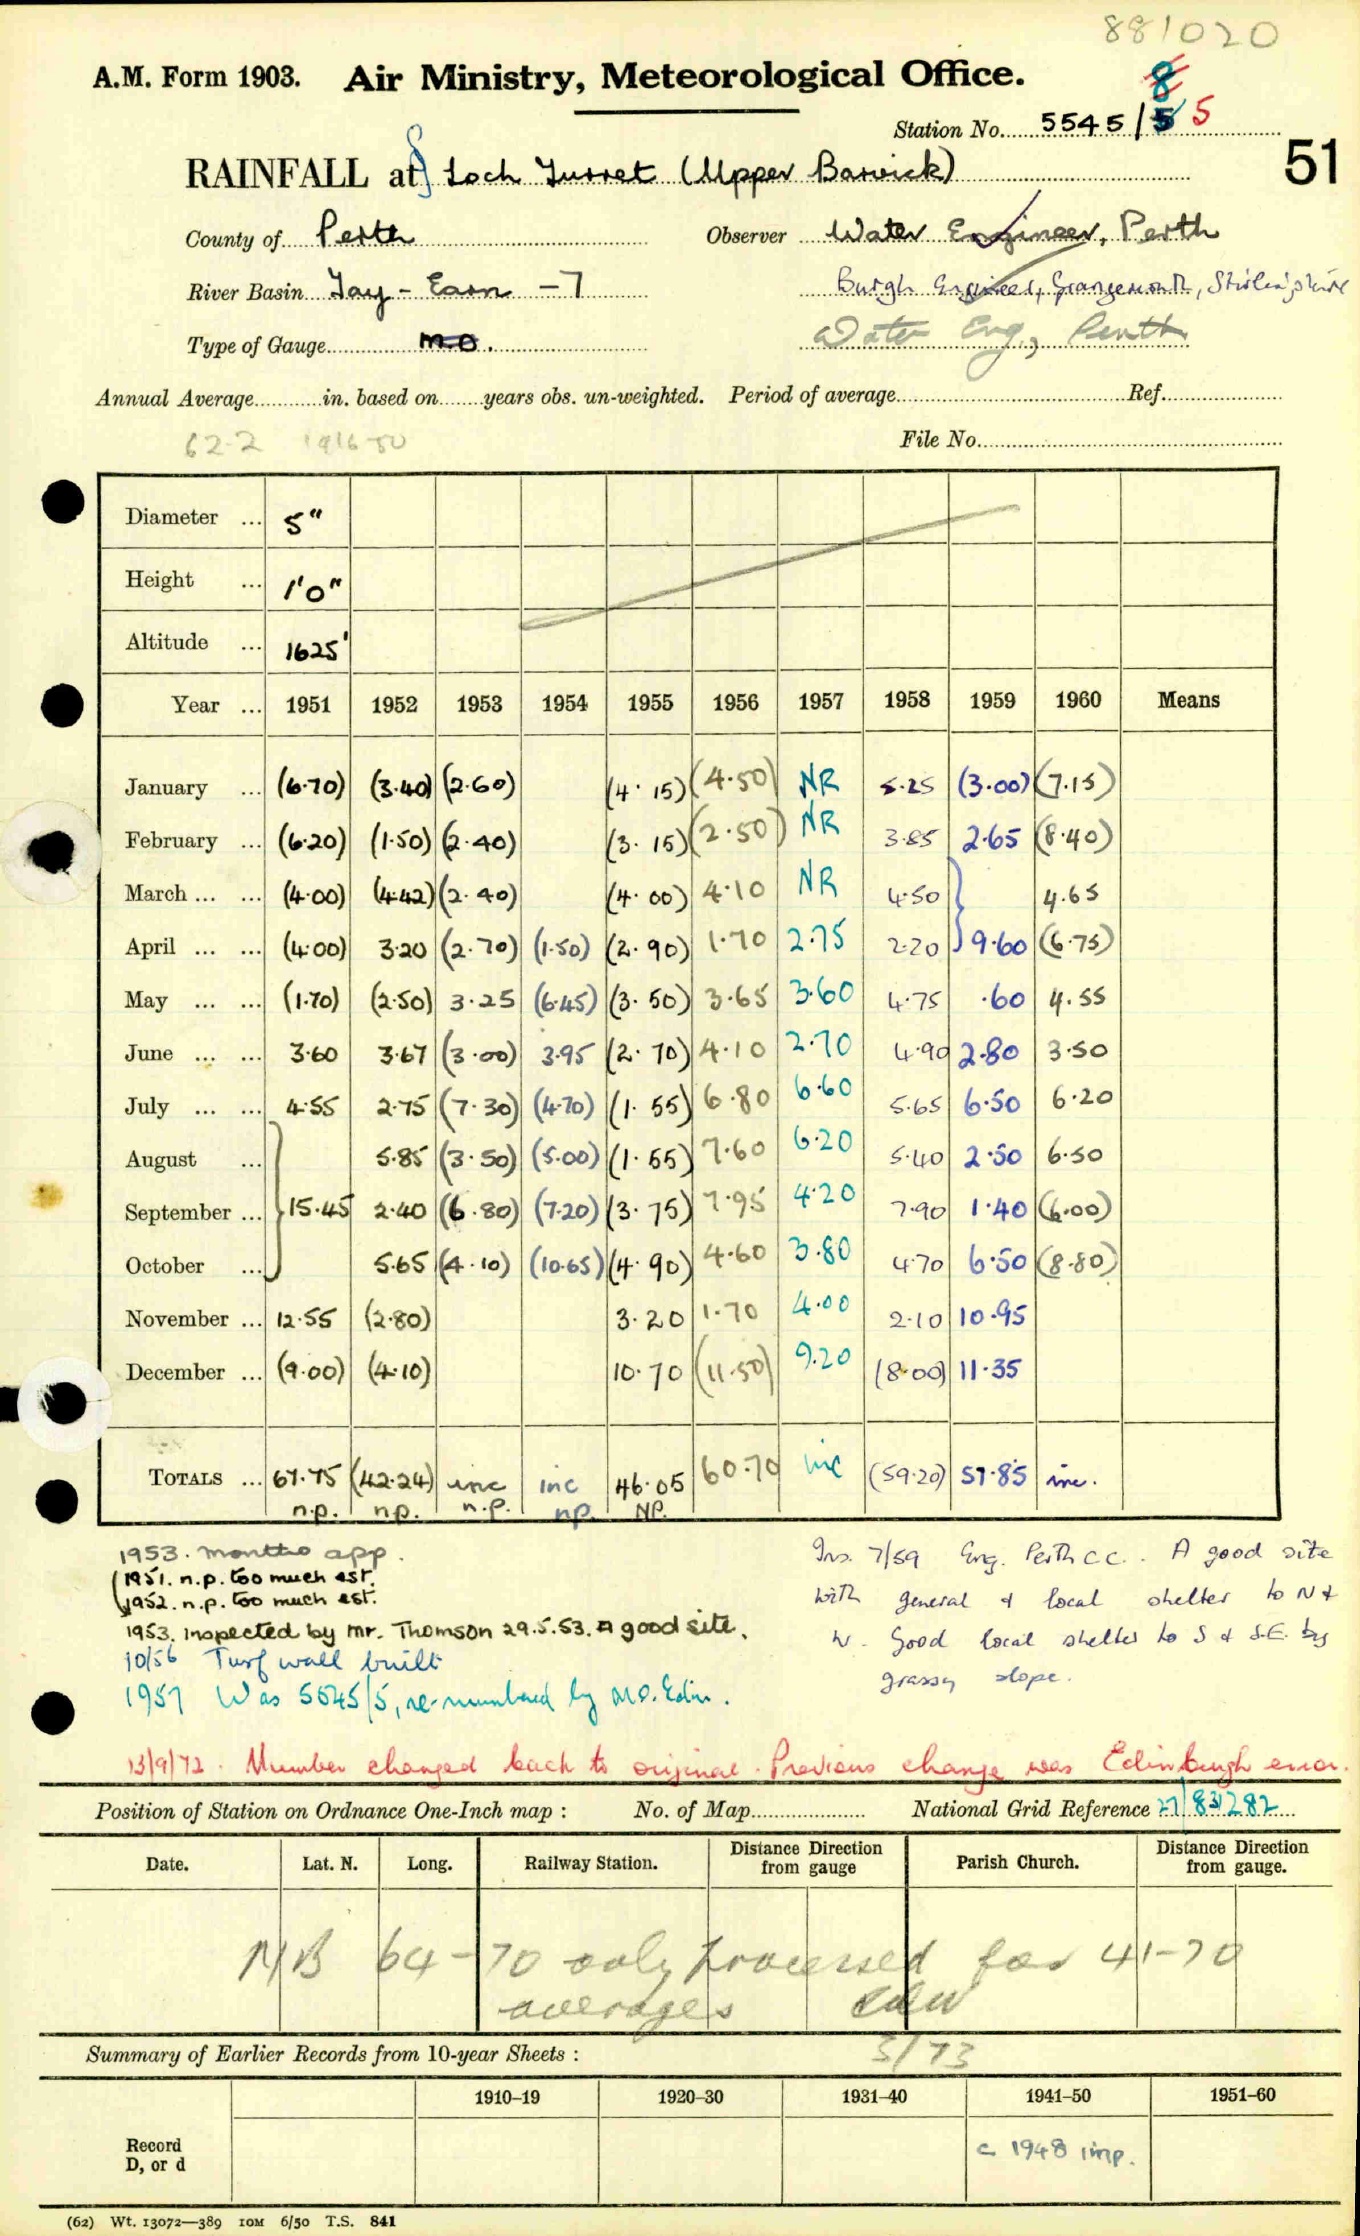 881020
A.M. Form 1903. Air Ministry, Meteorological Office.
8
Station No. 5545/5 5
51
RAINFALL at Loch Turret (Upper Barvick)
County of Perth Observer Water Engineer, Perth
River Basin Tay - Earn - 7 Burgh Engineer, Grangemouth, Stirlingshire
Type of Gauge m.o. Water Eng., Perth
Annual Average in. based on years obs. un-weighted. Period of average Ref.
62.2 1916-50 File No.
Diameter ... 5"
Height ... 1'0"
Altitude ... 1625'
Year ... 1951 1952 1953 1954 1955 1956 1957 1958 1959 1960 Means
January ... (6.70) (3.40) (2.60) (4.15) (4.50) NR 5.25 (3.00) (7.15)
February ... (6.20) (1.50) (2.40) (3.15) (2.50) NR 3.85 2.65 (8.40)
March ... ... (4.00) (4.42) (2.40) (4.00) 4.10 NR 4.50 } 4.65
April ... ... (4.00) 3.20 (2.70) (1.50) (2.90) 1.70 2.75 2.20 } 9.60 (6.75)
May ... ... (1.70) (2.50) 3.25 (6.45) (3.50) 3.65 3.60 4.75 .60 4.55
June ... ... 3.60 3.67 (3.00) 3.95 (2.70) 4.10 2.70 4.90 2.80 3.50
July ... ... 4.55 2.75 (7.30) (4.70) (1.55) 6.80 6.60 5.65 6.50 6.20
August ... 5.85 (3.50) (5.00) (1.55) 7.60 6.20 5.40 2.50 6.50
September ... } 15.45 2.40 (6.80) (7.20) (3.75) 7.95 4.20 7.90 1.40 (6.00)
October ... 5.65 (4.10) (10.65) (4.90) 4.60 3.80 4.70 6.50 (8.80)
November ... 12.55 (2.80) 3.20 1.70 4.00 2.10 10.95
December ... (9.00) (4.10) 10.70 (11.50) 9.20 (8.00) 11.35
TOTALS ... 67.75 (42.24) inc inc 46.05 60.70 inc (59.20) 57.85 inc.
n.p. n.p. n.p. n.p. NP.
1953. months app.
1951. n.p. too much est.
1952. n.p. too much est.
1953. inspected by Mr. Thomson 29.5.53. A good site.
10/56 Turf wall built
1957 Was 5545/5, re-numbered by M.O. Edin.
Ins. 7/59 Eng. Perth C.C. A good site
with general & local shelter to N &
W. Good local shelter to S & S.E. by
grassy slope.
13/9/72. Number changed back to original. Previous change was Edinburgh error.
Position of Station on Ordnance One-Inch map : No. of Map National Grid Reference 27/831282
Date. Lat. N. Long. Railway Station. Distance Direction from gauge Parish Church. Distance Direction from gauge.
NB 64-70 only processed for 41-70
averages
3/73
Summary of Earlier Records from 10-year Sheets :
1910–19 1920–30 1931–40 1941–50 1951–60
Record
D, or d
c 1948 imp.
(62) Wt. 13072—389 10M 6/50 T.S. 841